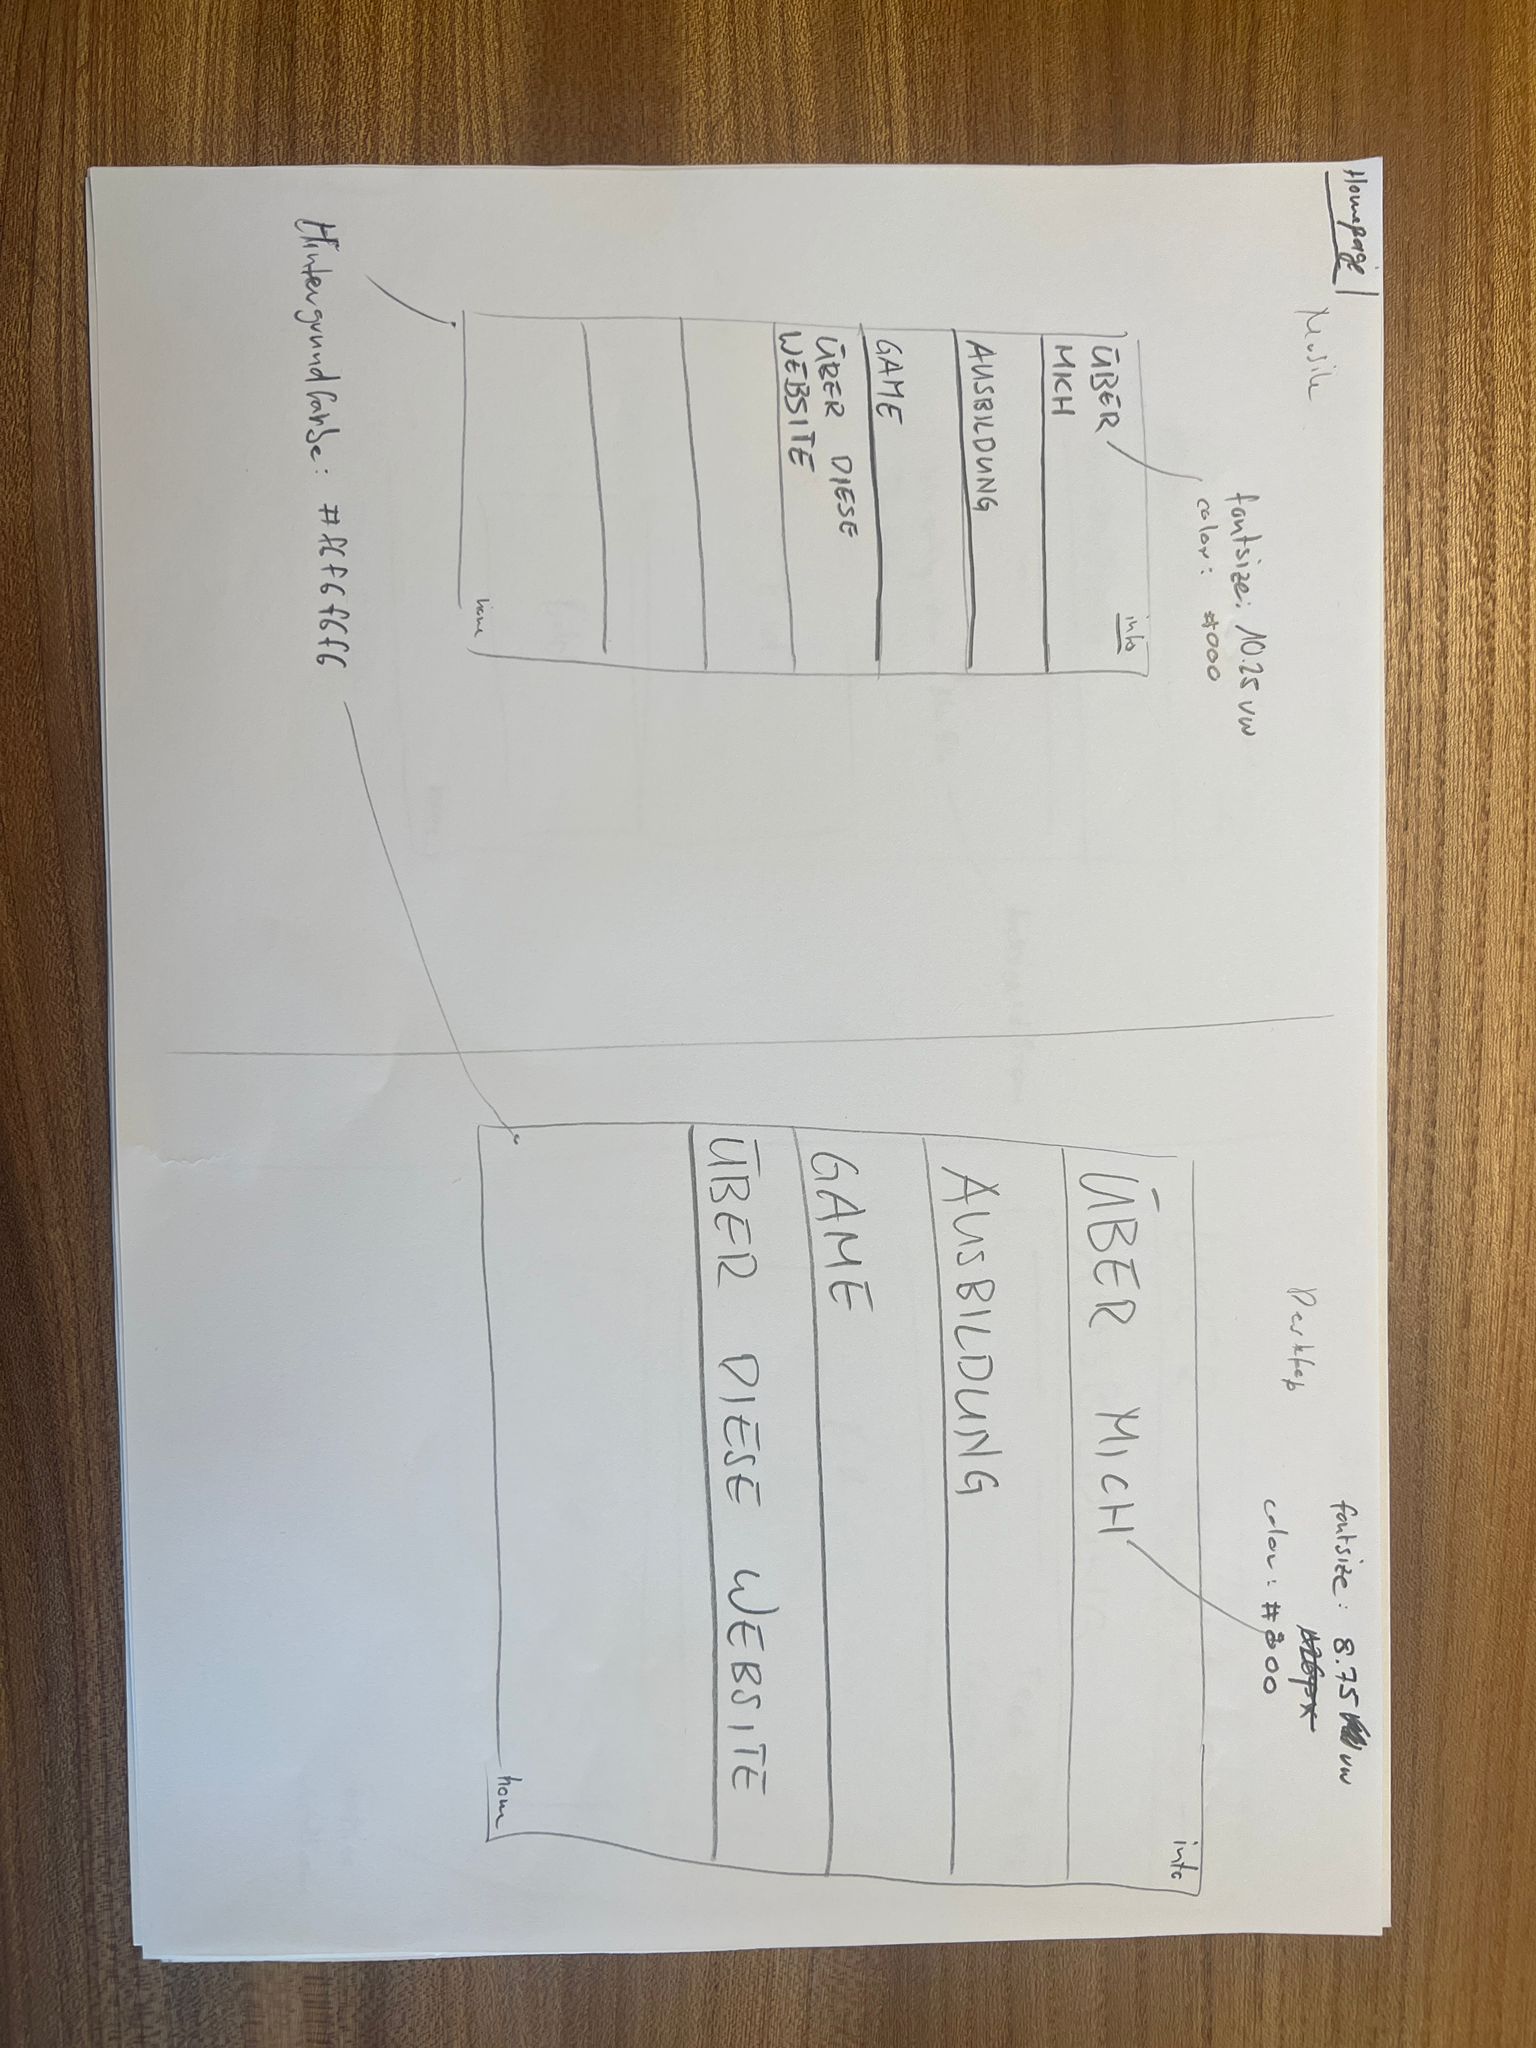 Homepage
Mobile
fontsize: 10.25 vw
color: #000
info
ÜBER
MICH
AUSBILDUNG
GAME
ÜBER DIESE
WEBSITE
home
Hintergrundfarbe: #f6f6f6f6
Desktop
fontsize: 8.75 vw
126px
color: #000
info
ÜBER MICH
AUSBILDUNG
GAME
ÜBER DIESE WEBSITE
home